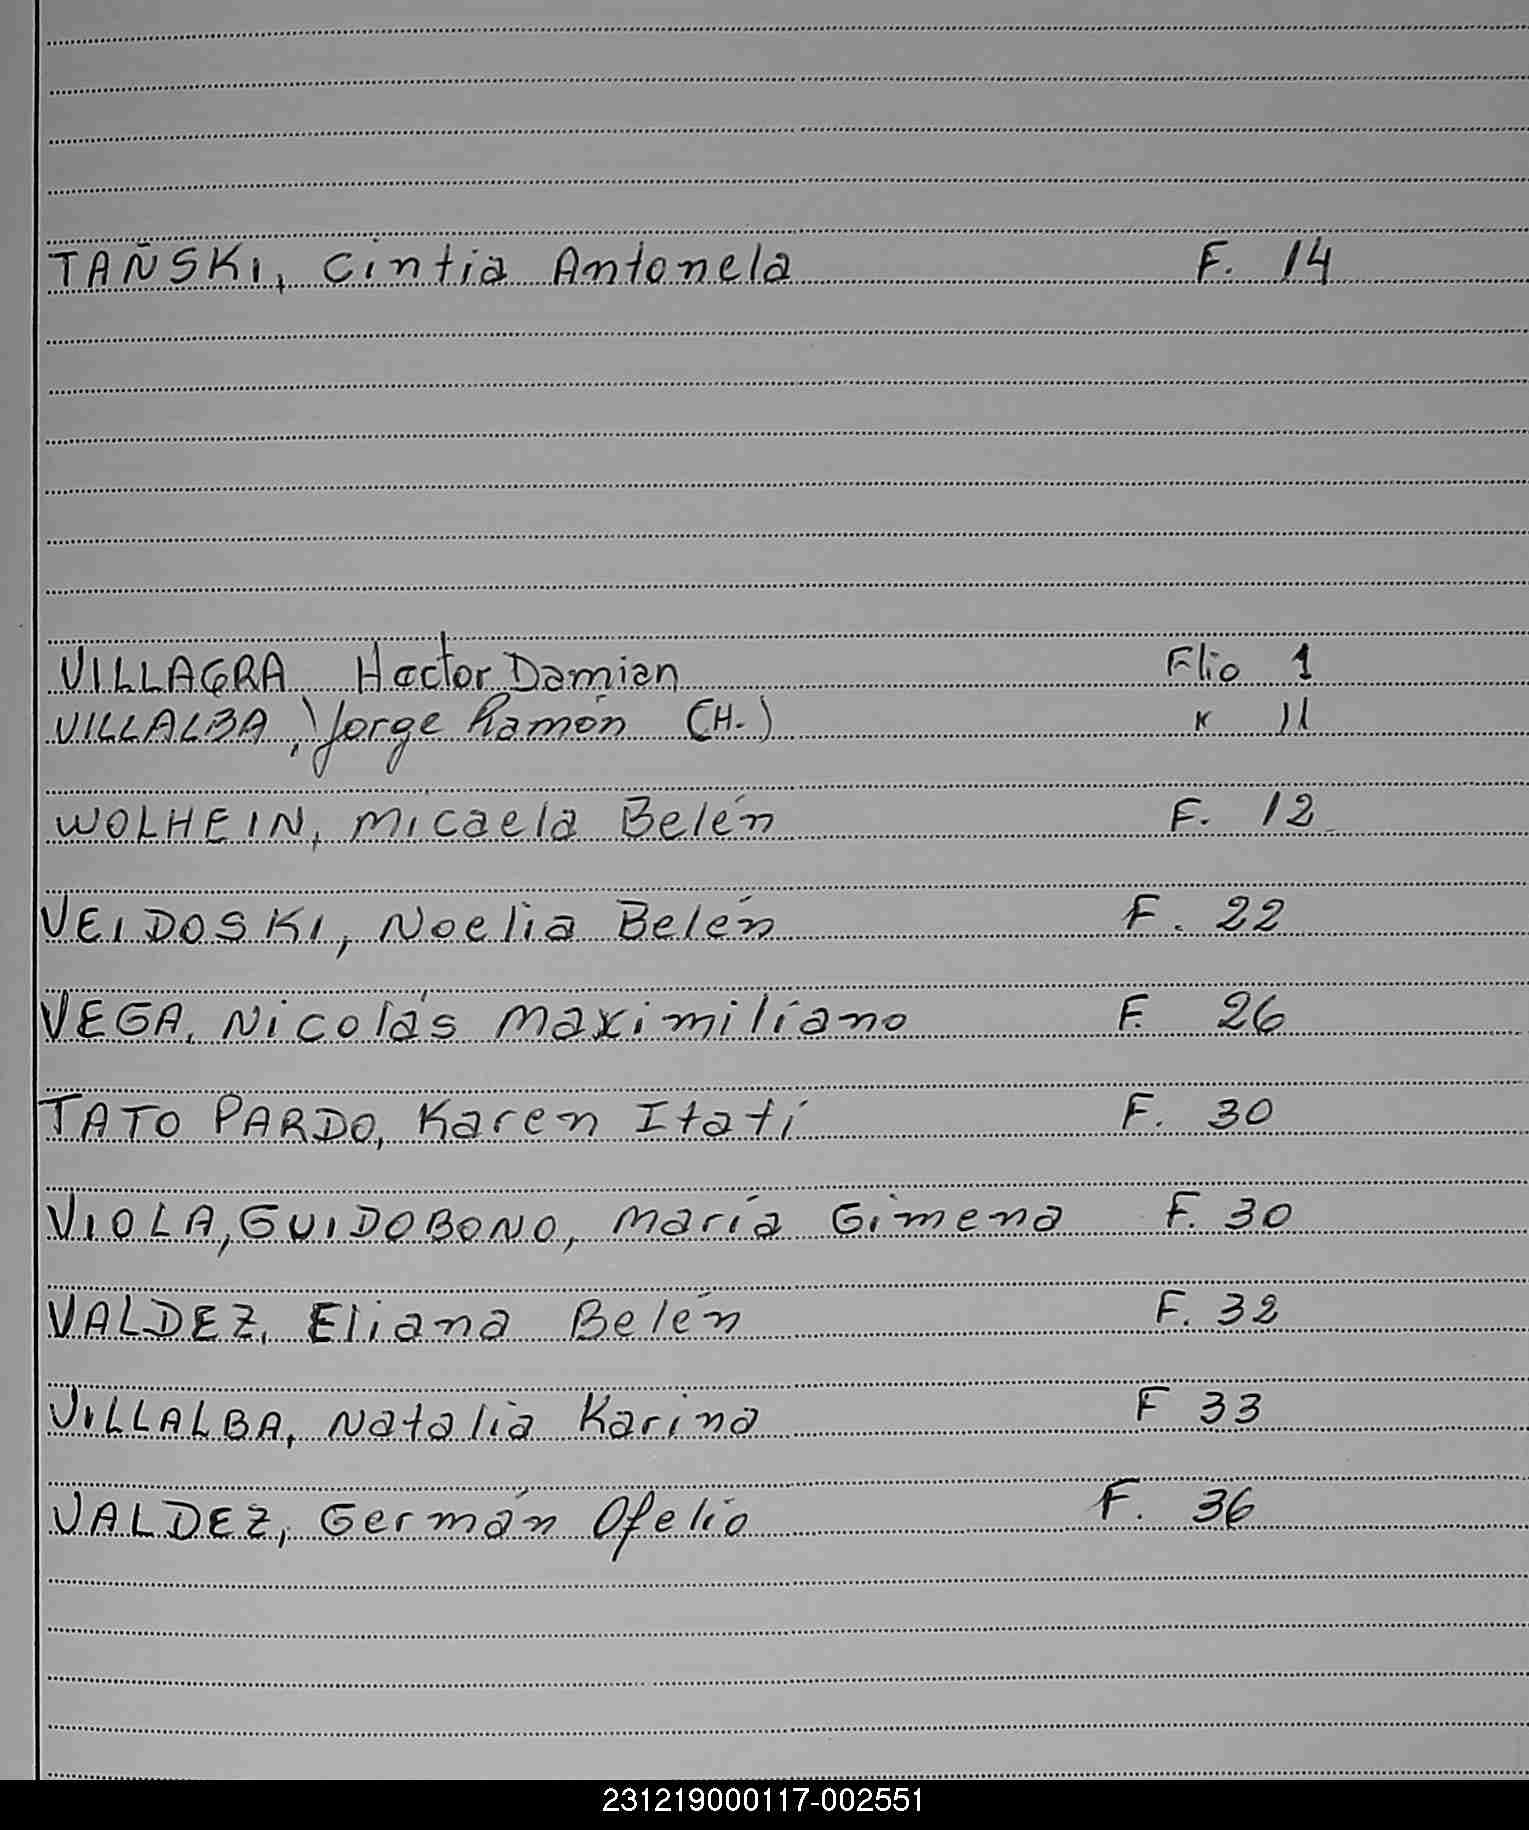 TAÑSKI, Cintia Antonela F. 14
VILLAGRA Hector Damian Flio 1
VILLALBA, Jorge Ramón (H.) " 11
WOLHEIN, Micaela Belén F. 12
VEIDOSKI, Noelia Belén F. 22
VEGA, Nicolás Maximiliano F. 26
TATO PARDO, Karen Itatí F. 30
VIOLA, GUIDOBONO, María Gimena F. 30
VALDEZ, Eliana Belén F. 32
VILLALBA, Natalia Karina F 33
VALDEZ, Germán Ofelio F. 36
231219000117-002551